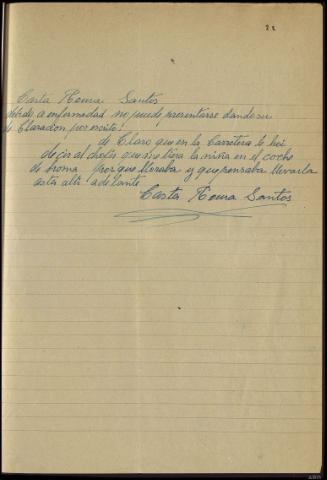 22
Casta Roma Santos
debido a enfermedad no puede presentarse dando su
de Claracion por escrito:
de Claro que en la Carretera le hoi
decir al chofer que metiera la niña en el coche
de broma porque lloraba y que pensaba llevarla
asta alli adelante
Casta Roma Santos